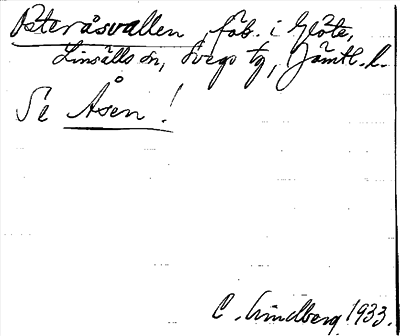 Österåsvallen, fäb. i Glöte,
Linsälls sn, Svegs tg, Jämtl. l.
Se Åsen!
C. Lindberg 1933.